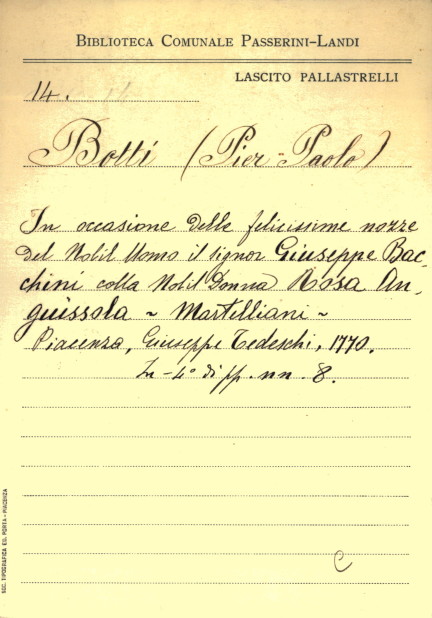 BIBLIOTECA COMUNALE PASSERINI-LANDI
LASCITO PALLASTRELLI
14.
Botti (Pier-Paolo)
In occasione delle felicissime nozze
del Nobil Uomo il signor Giuseppe Bac-
chini colla Nobil Donna Rosa An-
guissola ~ Martelliani ~
Piacenza, Giuseppe Tedeschi, 1770.
In-4° di pp. nn. 8.
C
SOC. TIPOGRAFICA ED. PORTA - PIACENZA